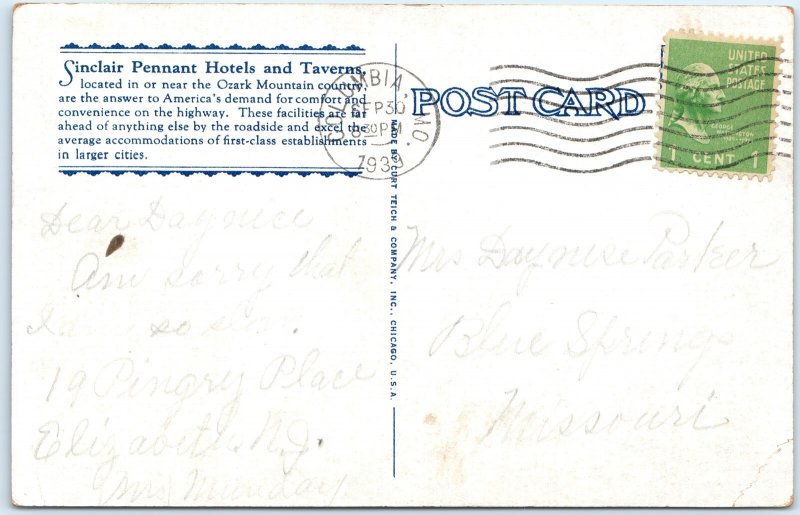 Sinclair Pennant Hotels and Taverns,
located in or near the Ozark Mountain country,
are the answer to America's demand for comfort and
convenience on the highway. These facilities are far
ahead of anything else by the roadside and excel the
average accommodations of first-class establishments
in larger cities.
COLUMBIA MO.
SEP 30
8 30 PM
POST CARD
UNITED
STATES
POSTAGE
1 CENT 1
MADE BY CURT TEICH & COMPANY, INC., CHICAGO, U.S.A.
Dear Daynise
Am sorry that
I am so slow.
19 Pingry Place
Elizabeth N.J.
Mrs Munday
Mrs Daynise Parker
Blue Springs
Missouri